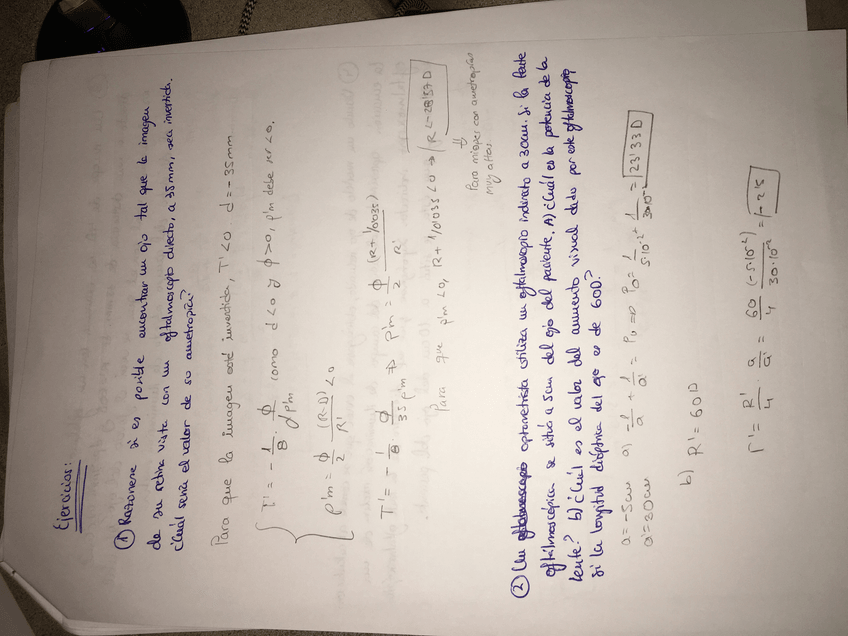 Ejercicios:
① Razonese si es posible encontrar un ojo tal que la imagen
de su retina vista con un oftalmoscopio directo, a 35mm, sea invertida.
¿Cuál sería el valor de su ametropía?
Para que la imagen esté invertida, T'<0. d=-35mm
T' = - 1/8 · φ/dp'm como d<0 y φ>0, p'm debe ser <0.
p'm = φ/2 (R-D)/R' <0
T' = - 1/8 · φ/35p'm ⇒ p'm = φ/2 (R+1/0'035)/R'
Para que p'm <0, R+1/0'035<0 ⇒ R<-28'57D
Para miopes con ametropías
muy altas.
② Un optometrista utiliza un oftalmoscopio indirecto a 30cm. Si la lente
oftálmoscópica se sitúa a 5cm del ojo del paciente, A) ¿Cuál es la potencia de la
lente? b) ¿Cuál es el valor del aumento visual dado por este oftalmoscopio,
si la longitud dióptrica del ojo es de 60D?
a=-5cm a) -1/a + 1/a' = Po ⇒ Po = 1/5·10⁻² + 1/30·10⁻² = 23'33D
a'=30cm
b) R'=60D
Γ' = R'/4 · a/a' = 60/4 (-5·10⁻²)/30·10⁻² = -2'5